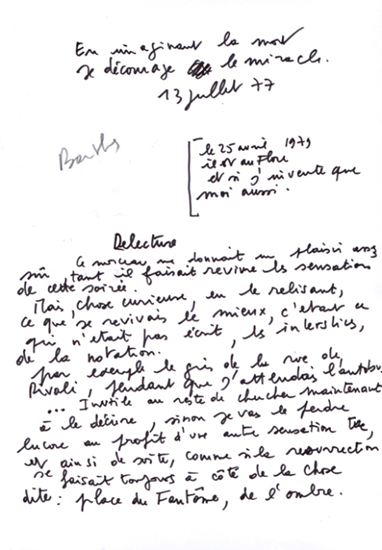 En imaginant la mort
je décourage le miracle.
13 juillet 77
Barthes
le 25 avril 1979
il est au Flore
et si j'invente que
moi aussi.
Relecture
Ce morceau me donnait un plaisir assez
sûr, tant il faisait revivre les sensations
de cette soirée.
Mais, chose curieuse, en le relisant,
ce que je revivais le mieux, c'était ce
qui n'était pas écrit, les interstices
de la notation.
par exemple le gris de la rue de
Rivoli, pendant que j'attendais l'autobus
... Inutile au reste de chercher maintenant
à le décrire, sinon je vais le perdre
encore au profit d'une autre sensation tue,
et ainsi de suite, comme si la résurrection
se faisait toujours à côté de la chose
dite : place du Fantôme, de l'ombre.